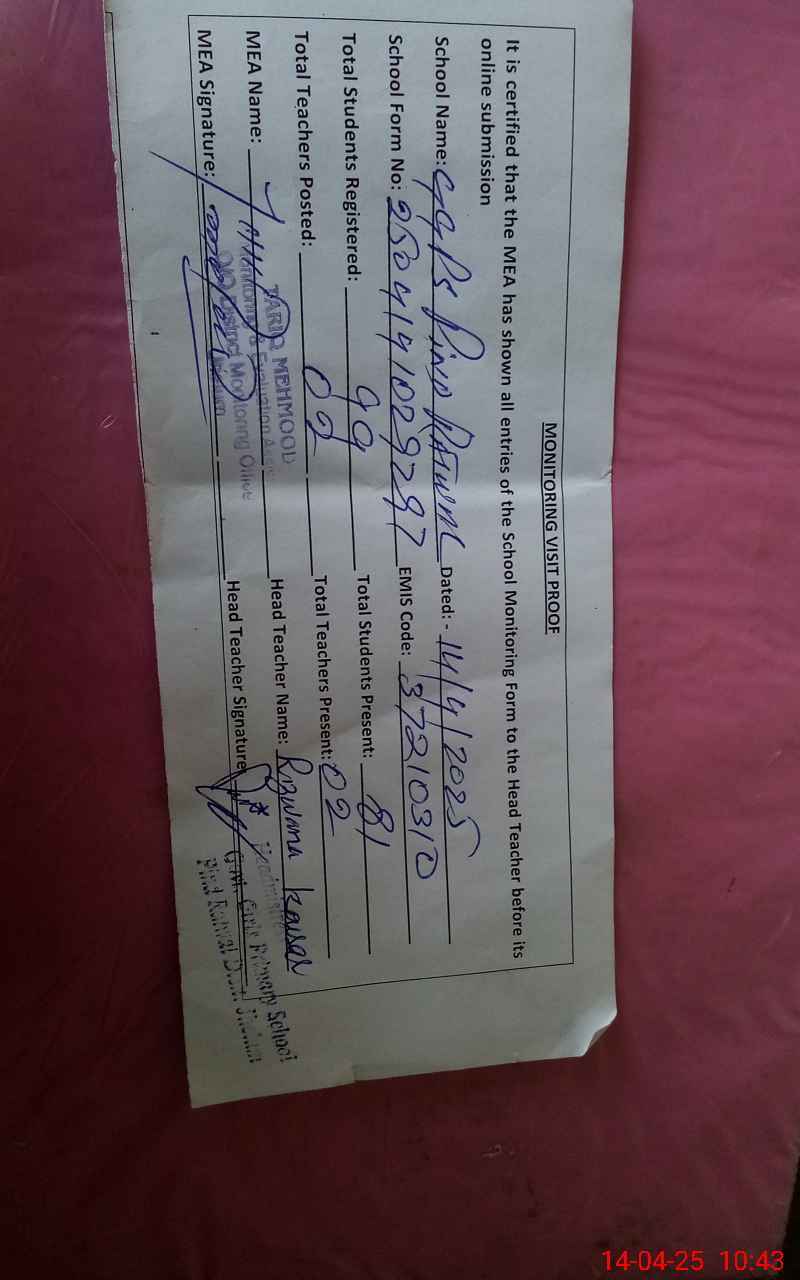 MONITORING VISIT PROOF
It is certified that the MEA has shown all entries of the School Monitoring Form to the Head Teacher before its
online submission
School Name: GGPS Pind Ratwal Dated:- 14/4/2025
School Form No: EMIS Code: 37210310
Total Students Registered: 99 Total Students Present: 81
Total Teachers Posted: 02 Total Teachers Present: 02
MEA Name: Head Teacher Name: Rizwana Kausar
MEA Signature: Head Teacher Signature
TARIQ MEHMOOD
Monitoring & Evaluation Assis
O/O District Monitoring Office
Govt. Girls Primary School
Pind Ratwal Distt. Jhelum
14-04-25 10:43